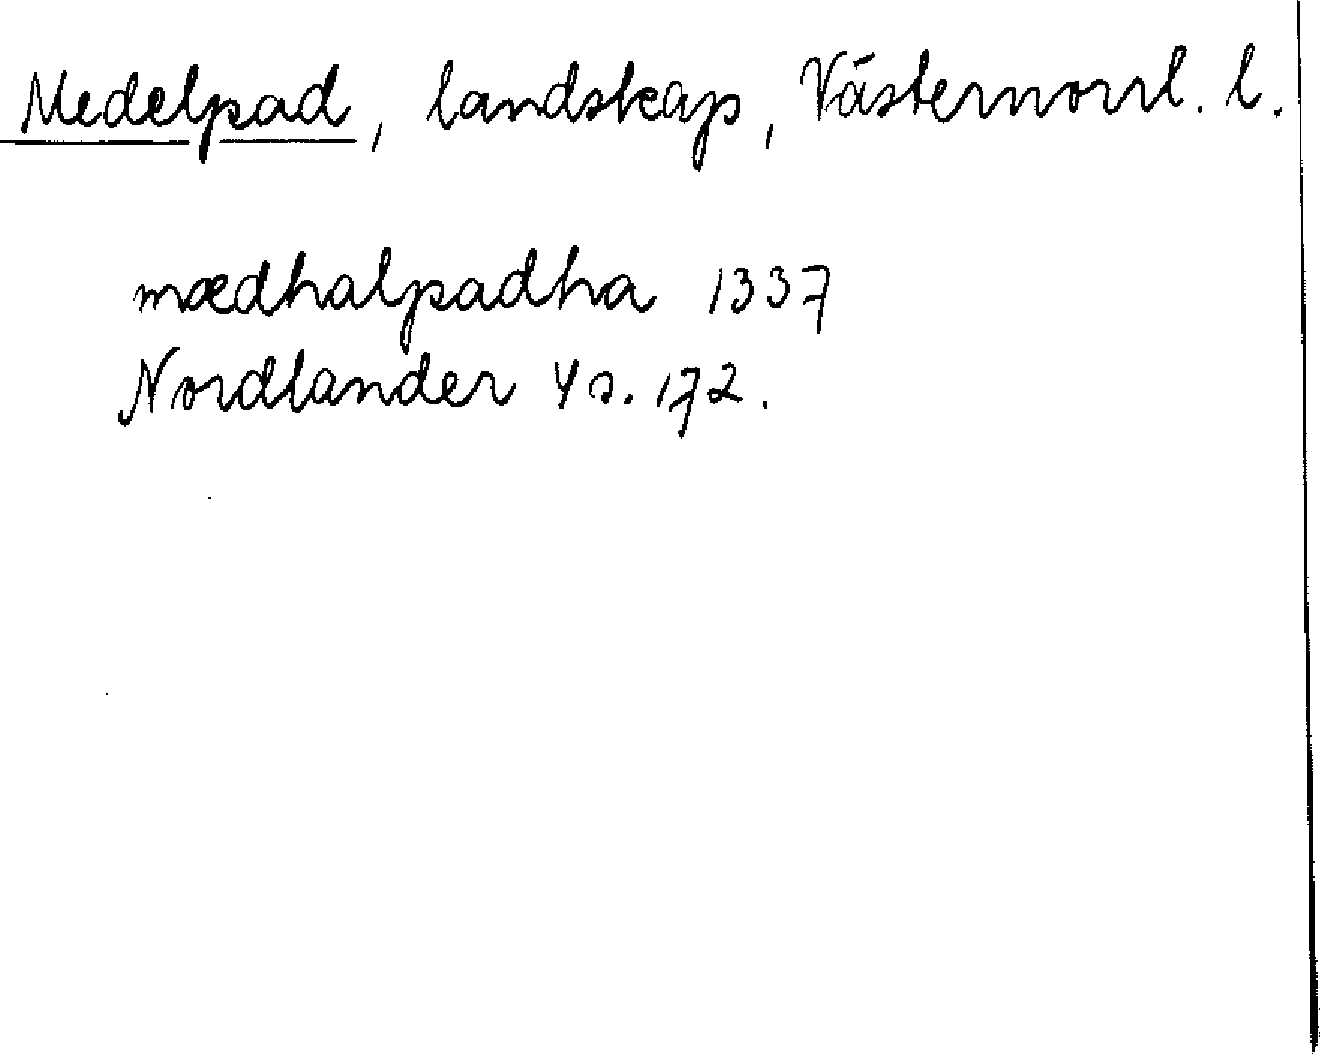 Medelpad, landskap, Västernorrl. l.
mædhalpadha 1337
Nordlander 4 s. 172.